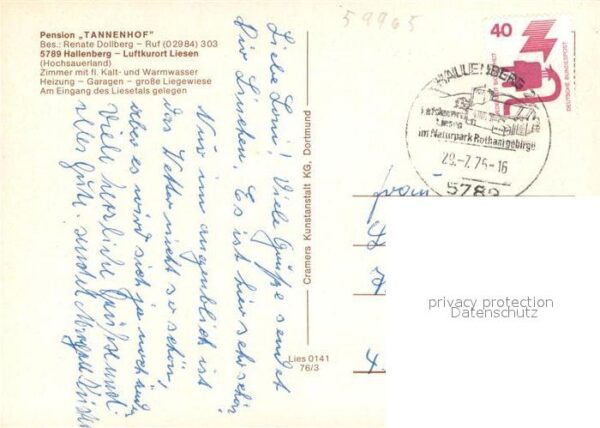 59965
Pension „TANNENHOF"
Bes.: Renate Dollberg – Ruf (02984) 303
5789 Hallenberg – Luftkurort Liesen
(Hochsauerland)
Zimmer mit fl. Kalt- und Warmwasser
Heizung – Garagen – große Liegewiese
Am Eingang des Liesetals gelegen
Liebe Loni! Viele Grüße sendet
Dir Linchen. Es ist hier sehr schön
Nur im augenblick ist
das Wetter nicht so schön,
aber es wird sich ja noch ändern
Viele herzliche Grüße und
alles Gute. sendet
Cramers Kunstanstalt KG, Dortmund
Lies 0141
76/3
40
DEUTSCHE BUNDESPOST
HALLENBERG
Liesen
im Naturpark Rothaargebirge
29.-7.76-16
5789
Frau
privacy protection
Datenschutz